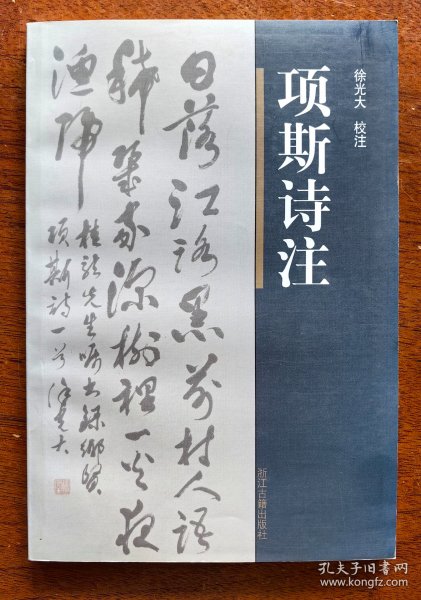 徐光大 校注
项斯诗注
浙江古籍出版社
日落江路黑前村人語
稀幾家深樹裡一火夜
渔歸
先生嘱书録鄉賢
项斯詩一首 徐光大
孔夫子旧书网
www.kongfz.com